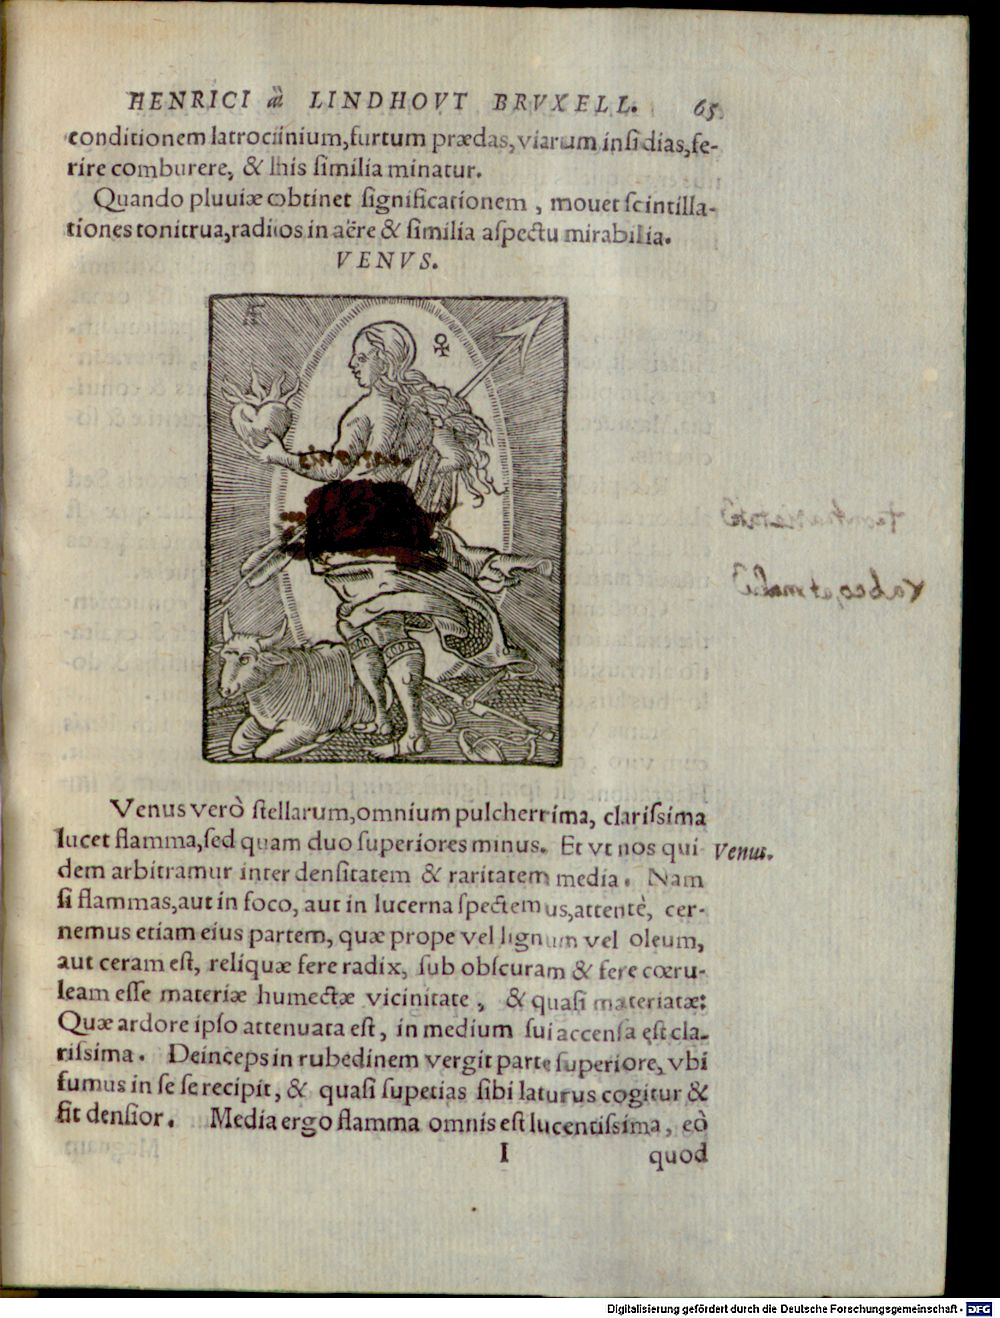 HENRICI à LINDHOVT BRVXELL. 65
conditionem latrociinium,furtum prædas,viarum insidias,fe-
rire comburere, & his similia minatur.
Quando pluuiæ obtinet significationem , mouet scintilla-
tiones tonitrua,radios in aëre & similia aspectu mirabilia.
VENVS.
AF
♀
Venus verò stellarum,omnium pulcherrima, clarissima
lucet flamma,sed quam duo superiores minus. Et vt nos qui-
Venus.
dem arbitramur inter densitatem & raritatem media. Nam
si flammas,aut in foco, aut in lucerna spectemus,attentè, cer-
nemus etiam eius partem, quæ prope vel lignum vel oleum,
aut ceram est, reliquæ fere radix, sub obscuram & fere cœru-
leam esse materiæ humectæ vicinitate , & quasi materiatæ:
Quæ ardore ipso attenuata est, in medium sui accensa est cla-
rissima. Deinceps in rubedinem vergit parte superiore, vbi
fumus in se se recipit, & quasi supetias sibi laturus cogitur &
fit densior. Media ergo flamma omnis est lucentissima, eò
I quod
Digitalisierung gefördert durch die Deutsche Forschungsgemeinschaft - DFG